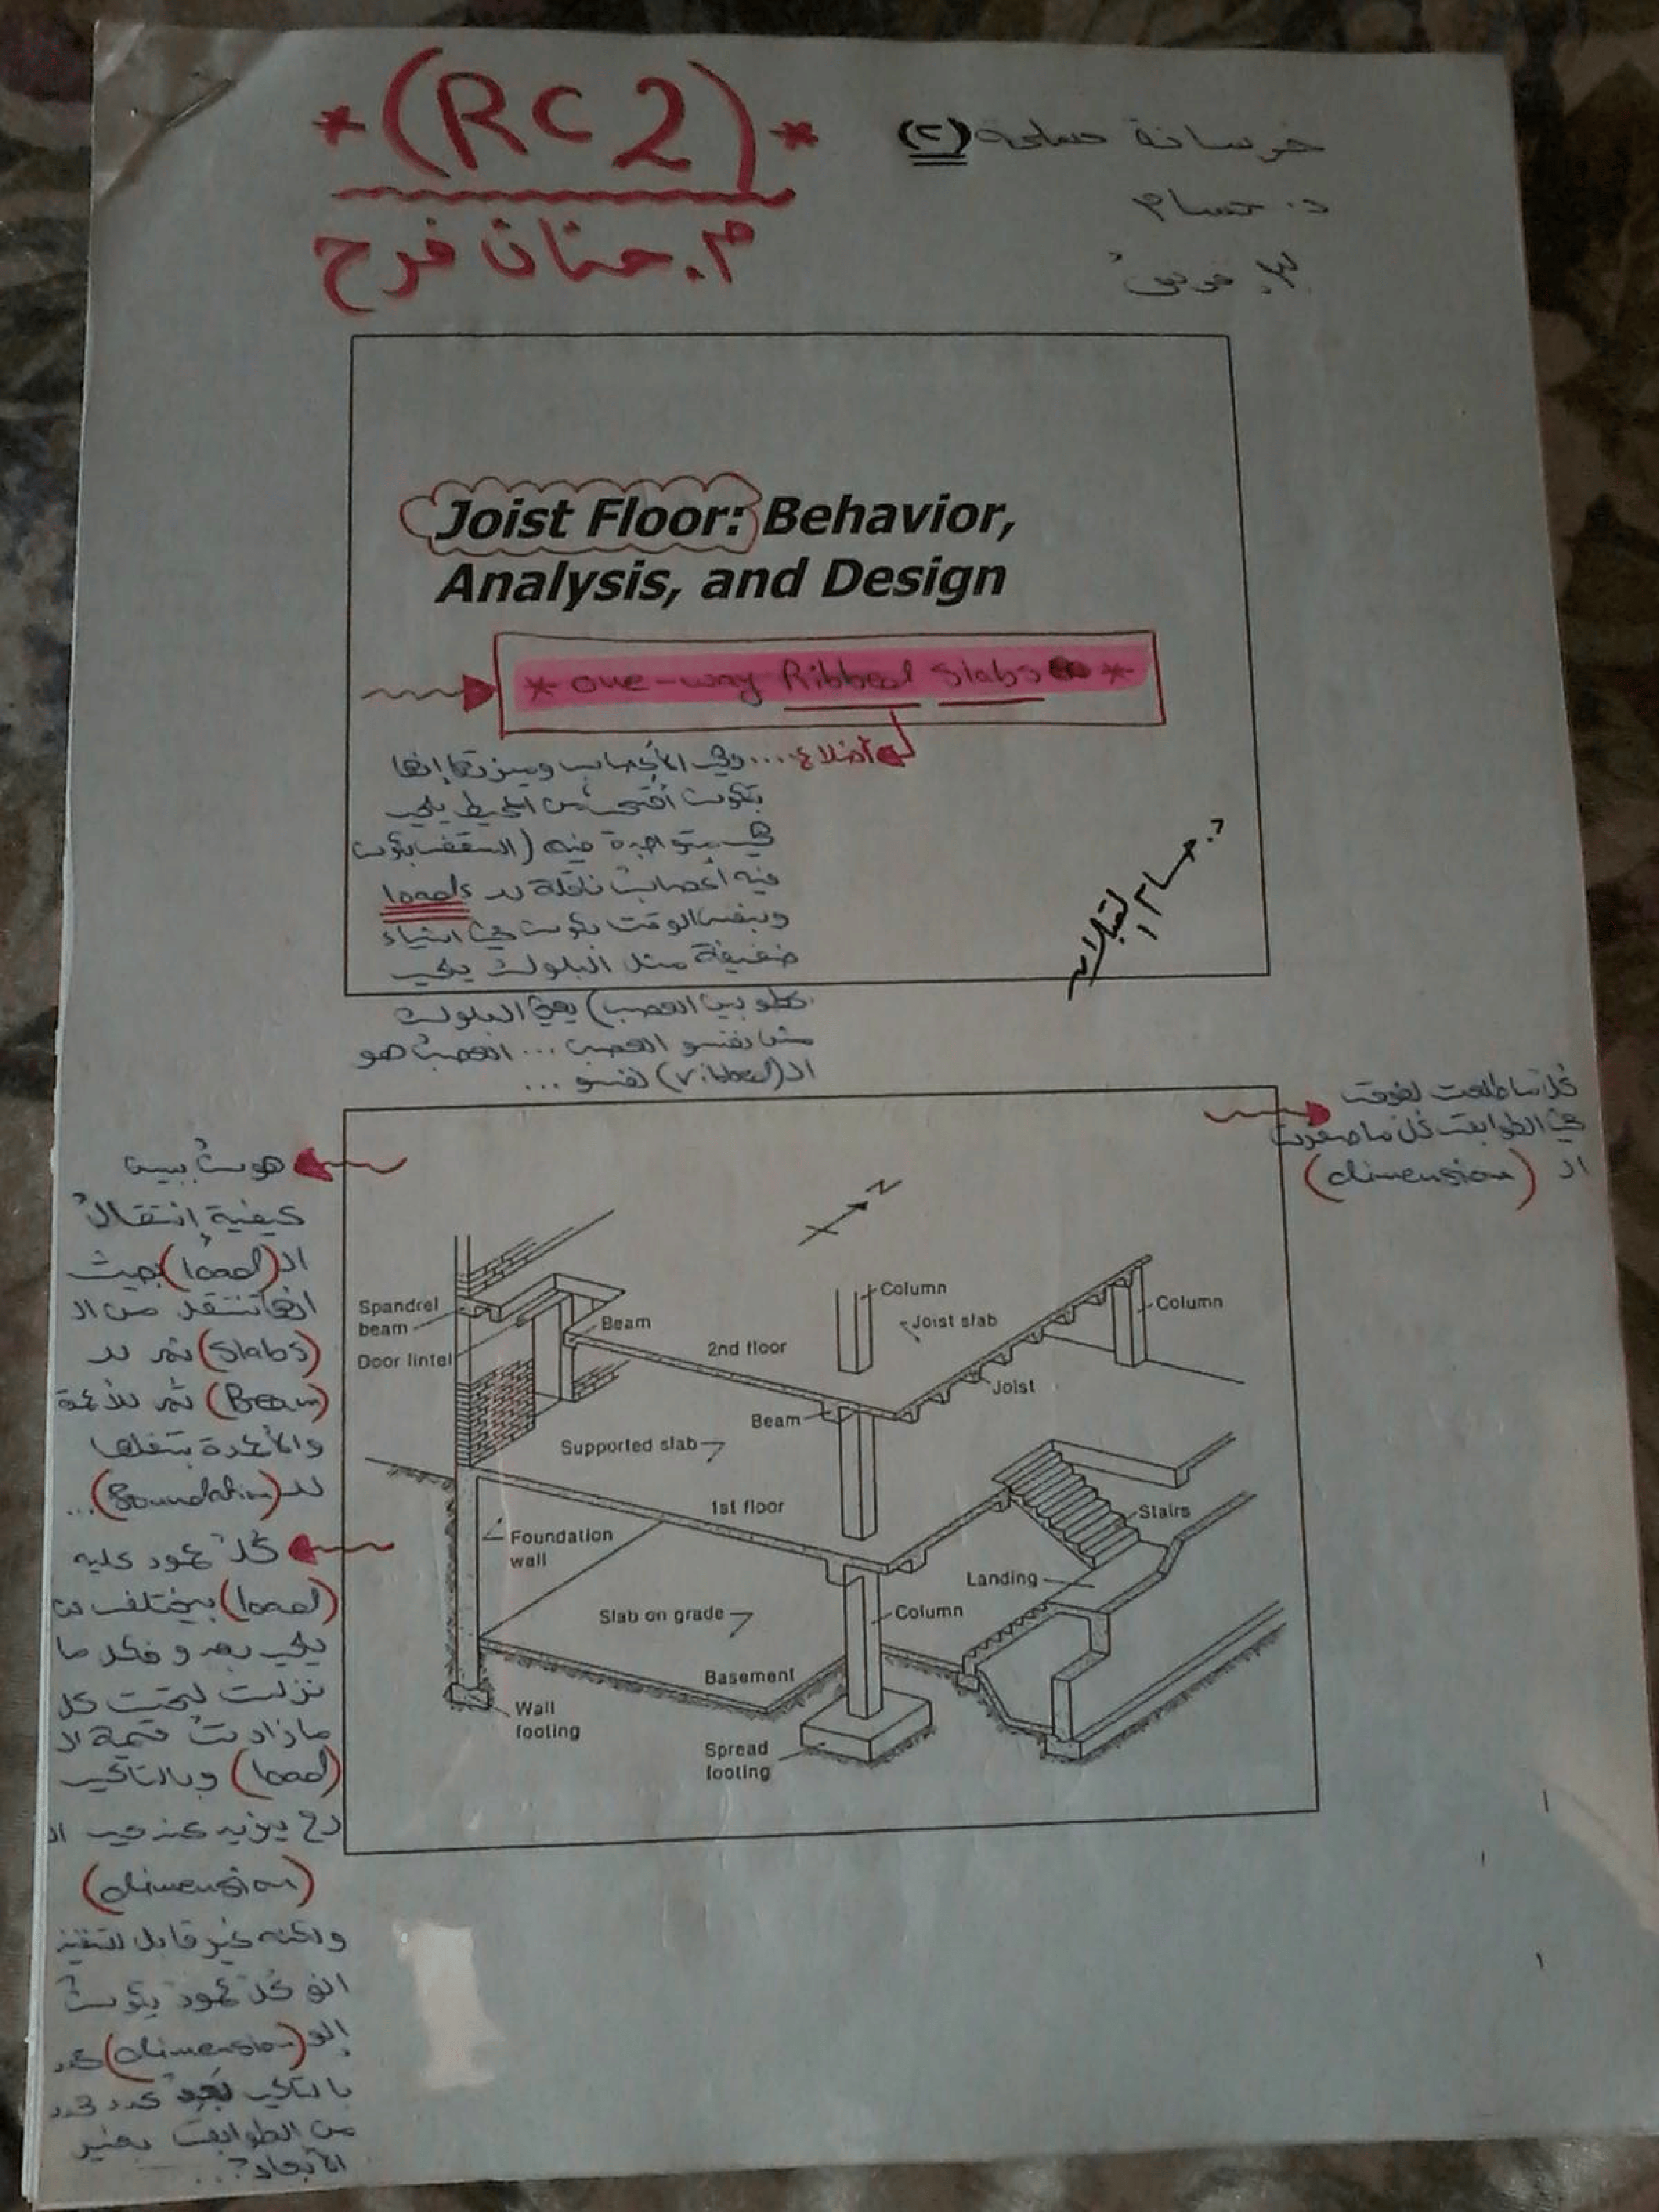 *(RC 2)*
م. حنان فرح
خرسانة مسلحة (٢)
د. حسام
Joist Floor: Behavior,
Analysis, and Design
* one-way Ribbed Slabs *
أضلاع .... وهي الأعصاب وميزتها إنها
بتكون أقوى من المحيط يلي
هي متواجدة فيه (السقف بكون
فيه أعصاب ناقلة لل loads
وبنفس الوقت بكون في أشياء
ضعيفة مثل البلوك يلي
بحطو بين العصب) يعني البلوك
مش نفسو العصب ... العصب هو
ال (ribbed) نفسو ...
د. حسام
كل ما طلعت لفوق
في الطوابق كل ما صغرت
ال (dimension)
هون ببين
كيفية إنتقال
ال (load) بحيث
انها تنتقل من ال
(slabs) ثم لل
(Beam) ثم للأعمدة
والأعمدة بتنقلها
لل (foundation) ...
كل عمود عليه
(load) بيختلف عن
يلي بعدو فكل ما
نزلت لتحت كل
ما زادت قيمة ال
(load) وبالتالي
رح يزيد عندي ال
(dimension)
ولكنه غير قابل للتنفيذ
انو كل عمود يكون
إلو (dimension)
بالتالي بعد عدد محدد
من الطوابق بغير
الأبعاد ...
N
Spandrel
beam
Door lintel
Beam
2nd floor
Column
Joist slab
Column
Joist
Beam
Supported slab
1st floor
Stairs
Foundation
wall
Landing
Slab on grade
Column
Basement
Wall
footing
Spread
footing